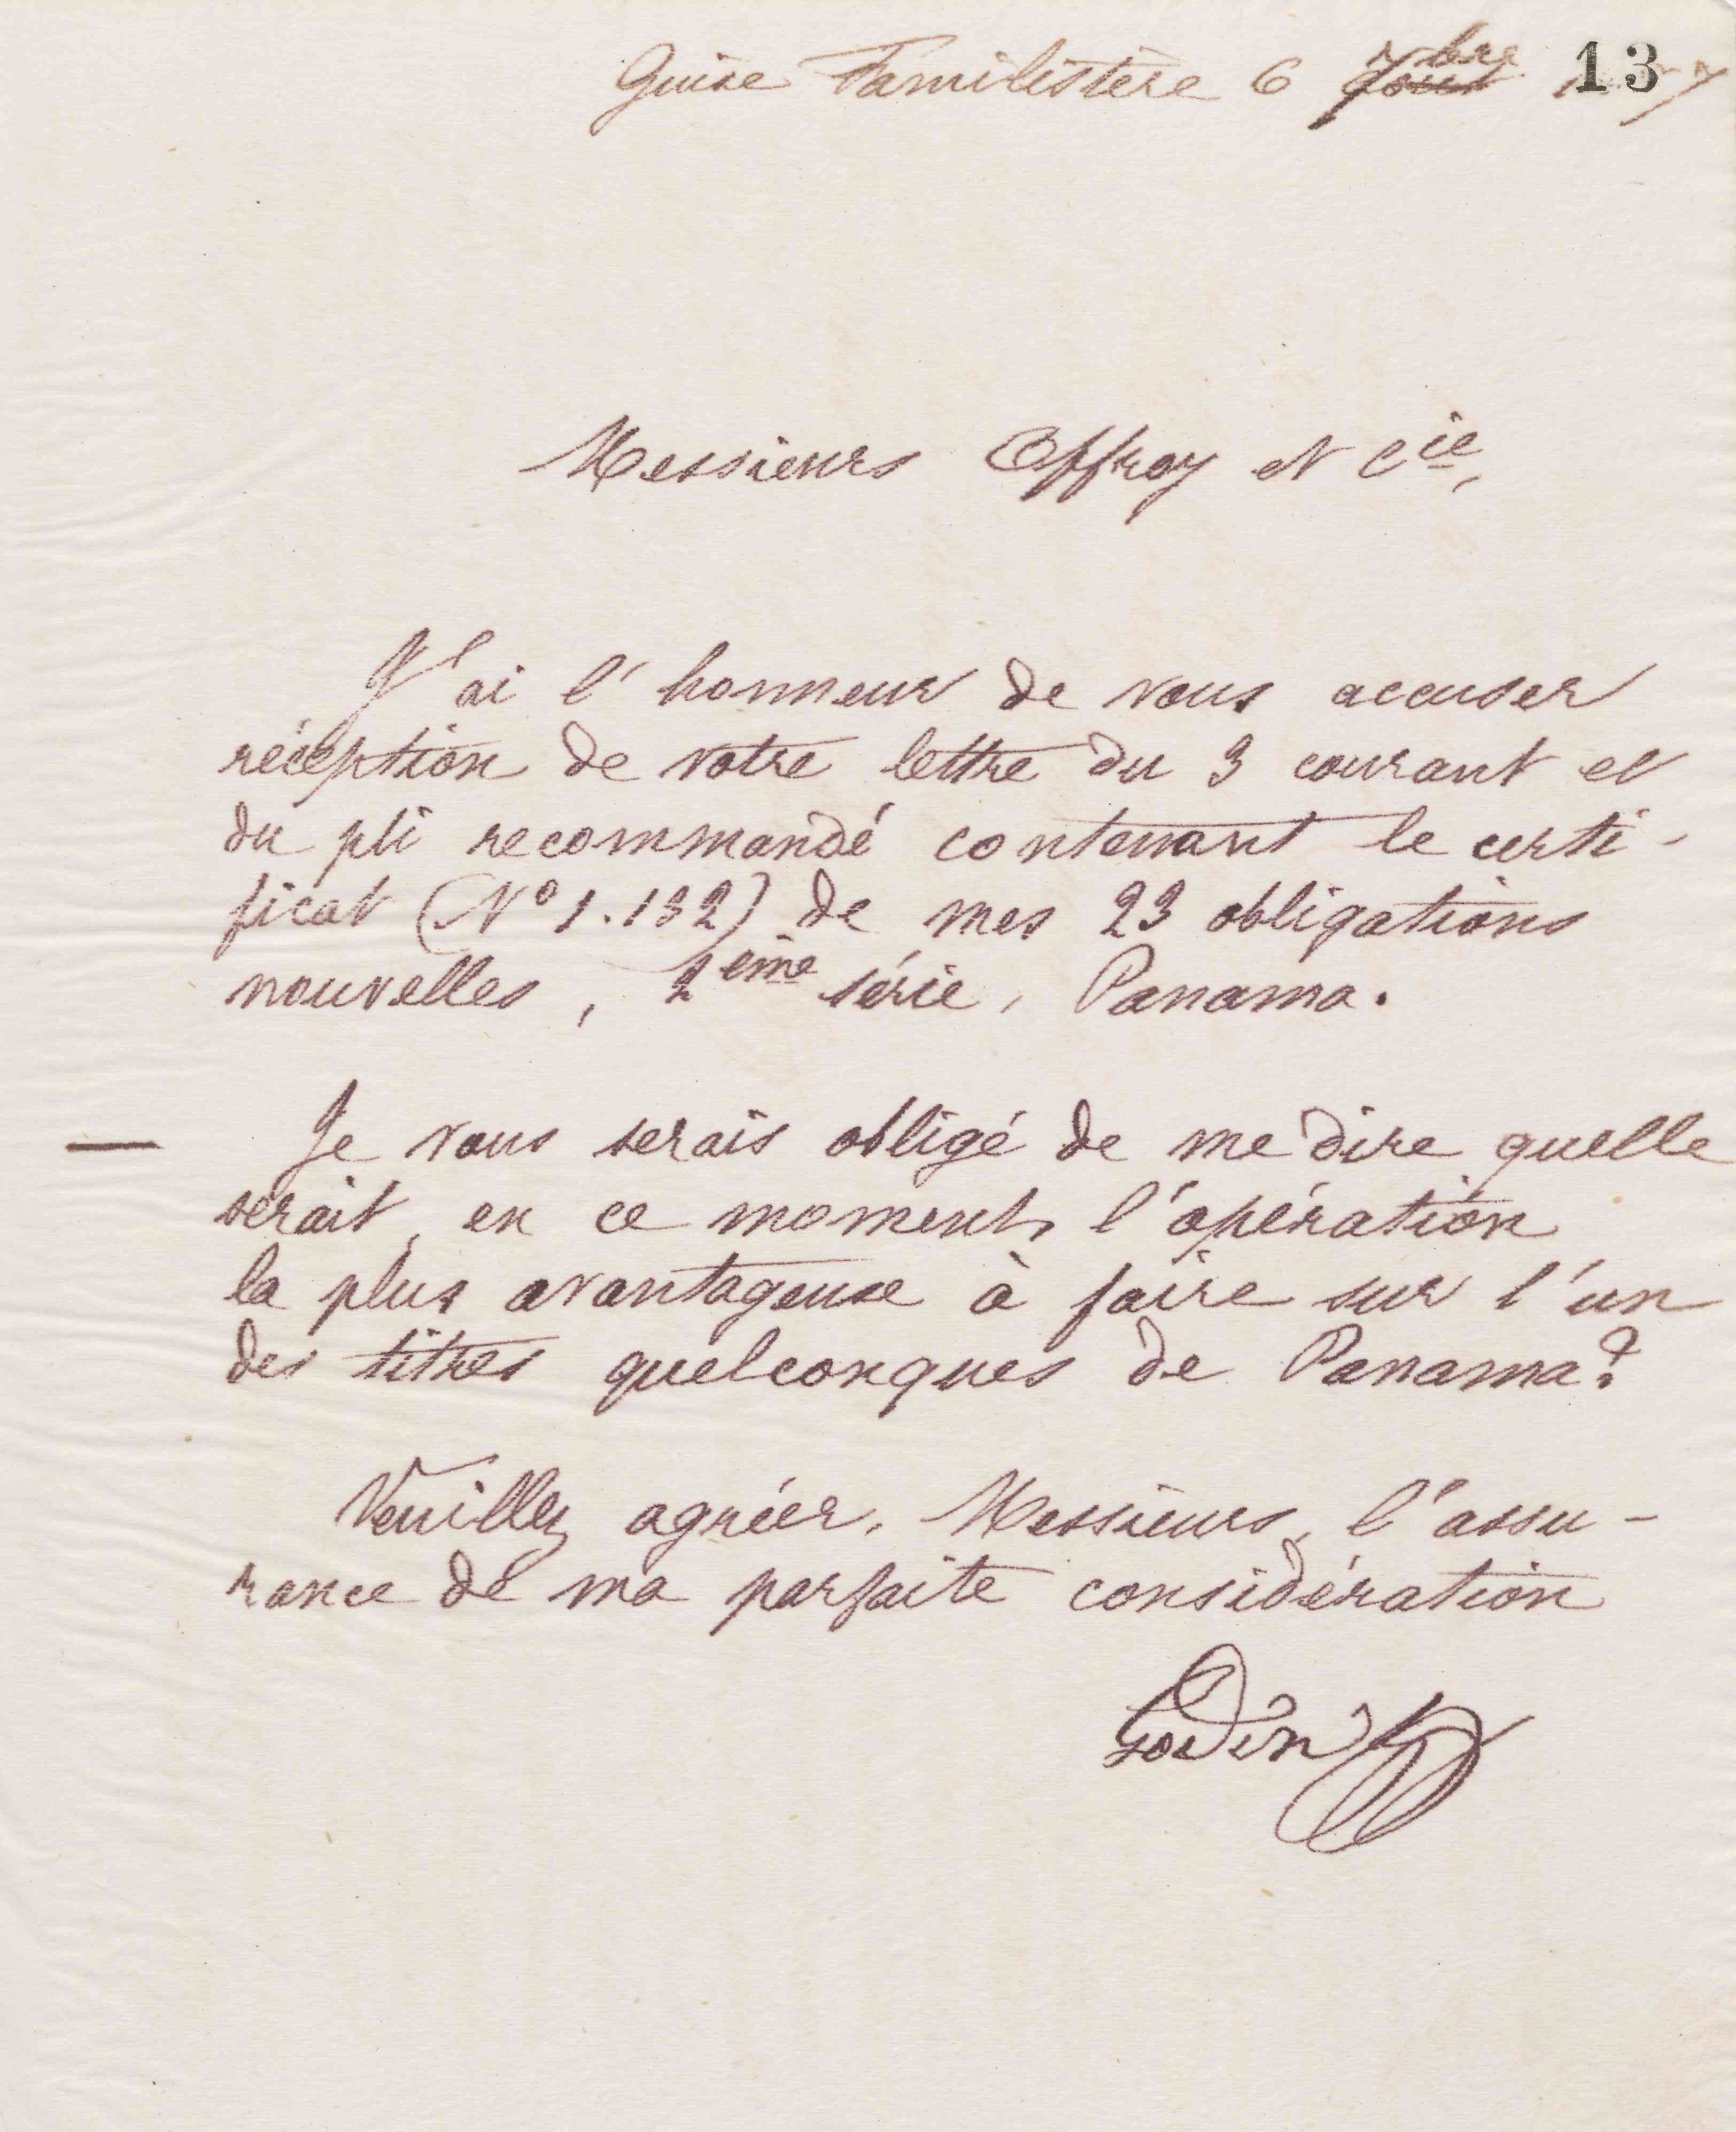 Guise Familistère 6 7bre 13
Messieurs Offroy et Cie,
J'ai l'honneur de vous accuser
réception de votre lettre du 3 courant et
du pli recommandé contenant le certi-
ficat (No 1.132) de mes 23 obligations
nouvelles, 2ème série, Panama.
— Je vous serais obligé de me dire quelle
serait, en ce moment, l'opération
la plus avantageuse à faire sur l'un
des titres quelconques de Panama?
Veuillez agréer, Messieurs, l'assu-
rance de ma parfaite considération
Godin